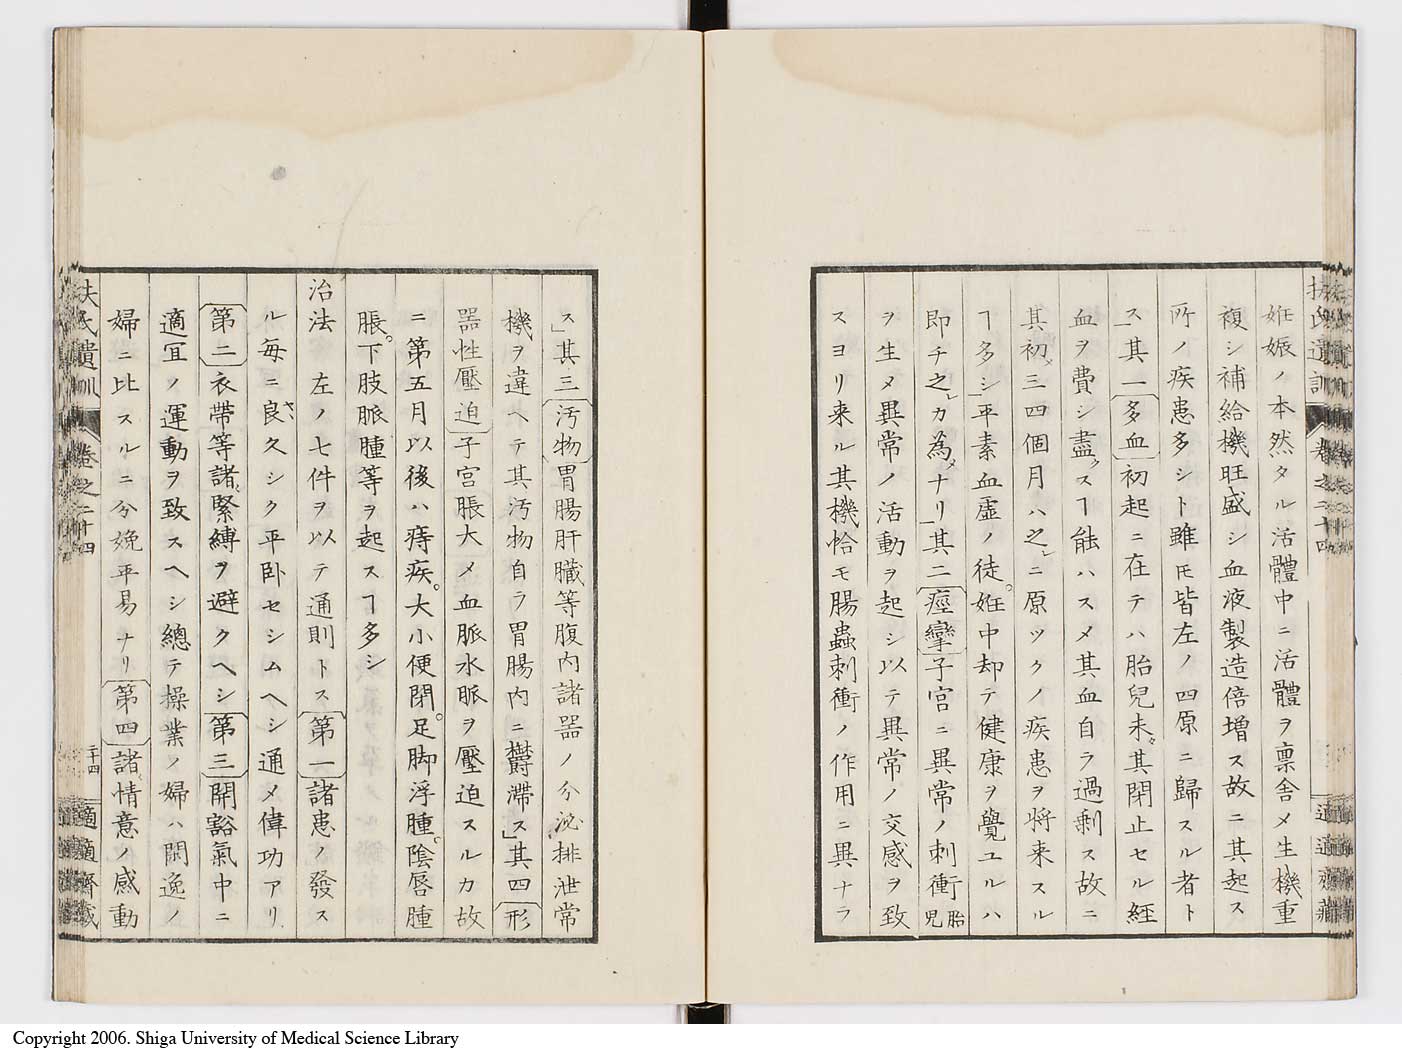 扶氏遺訓 卷之二十四 適適齋藏
妊娠ノ本然タル活體中ニ活體ヲ稟舎メ生機重
複シ補給機旺盛シ血液製造倍増ス故ニ其起ス
所ノ疾患多シト雖モ皆左ノ四原ニ歸スル者ト
ス」其一多血初起ニ在テハ胎兒未タ其閉止セル經
血ヲ費シ盡クスヿ能ハスメ其血自ラ過剩ス故ニ
其初メ三四個月ハ之レニ原ツクノ疾患ヲ将来スル
ヿ多シ」平素血虚ノ徒。妊中却テ健康ヲ覺ユルハ
即チ之レカ為メナリ」其二痙攣子宮ニ異常ノ刺衝胎兒
ヲ生メ異常ノ活動ヲ起シ以テ異常ノ交感ヲ致
スヨリ来ル其機恰モ腸蟲刺衝ノ作用ニ異ナラ
ス」其三汚物胃腸肝臓等腹内諸器ノ分泌排泄常
機ヲ違ヘテ其汚物自ラ胃腸内ニ欝滯ス」其四形
器性壓迫子宮脹大メ血脈水脈ヲ壓迫スルカ故
ニ第五月以後ハ痔疾。大小便閉。足脚浮腫。陰唇腫
脹。下肢脈腫等ヲ起スヿ多シ
治法 左ノ七件ヲ以テ通則トス第一諸患ノ發ス
ル毎ニ良久シク平卧セシムヘシ通メ偉功アリ
第二衣帶等諸緊縛ヲ避クヘシ第三開豁氣中ニ
適宜ノ運動ヲ致スヘシ總テ操業ノ婦ハ閑逸ノ
婦ニ比スルニ分娩平易ナリ第四諸情意ノ感動
扶氏遺訓 卷之二十四 二十四 適適齋藏
Copyright 2006. Shiga University of Medical Science Library